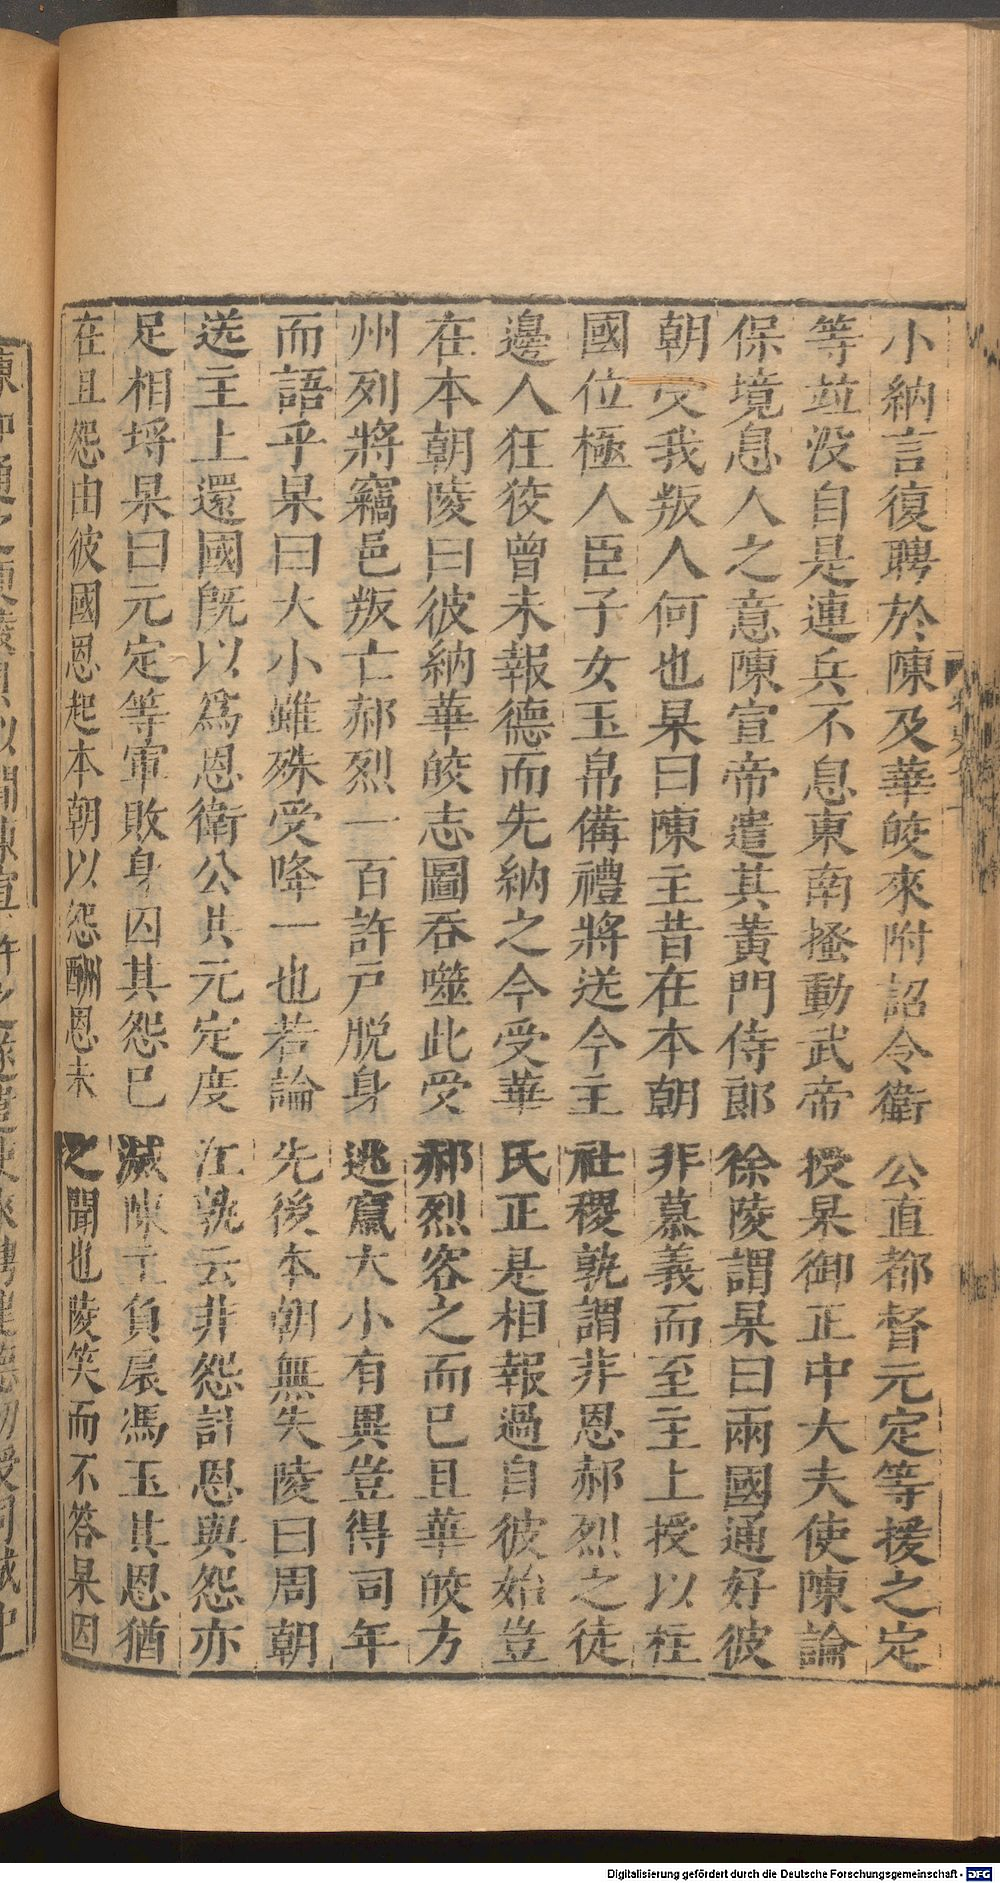 小納言復聘於陳及華皎來附詔令衛公直都督元定等援之定
等竝没自是連兵不息東南搔動武帝授杲御正中大夫使陳論
保境息人之意陳宣帝遣其黃門侍郎徐陵謂杲曰兩國通好彼
朝受我叛人何也杲曰陳主昔在本朝非慕義而至主上授以柱
國位極人臣子女玉帛備禮將送今主社稷孰謂非恩郝烈之徒
邊人狂狡曾未報德而先納之今受華氏正是相報過自彼始豈
在本朝陵曰彼納華皎志圖吞噬此受郝烈容之而已且華皎方
州列將竊邑叛亡郝烈一百許戸脱身逃竄大小有異豈得同年
而語乎杲曰大小雖殊受降一也若論先後本朝無失陵曰周朝
送主上還國旣以爲恩衛公共元定度江孰云非怨計恩與怨亦
足相埓杲曰元定等軍敗身囚其怨已滅陳主負扆馮玉其恩猶
在且怨由彼國恩起本朝以怨酬恩未之聞也陵笑而不答杲因
Digitalisierung gefördert durch die Deutsche Forschungsgemeinschaft - DFG